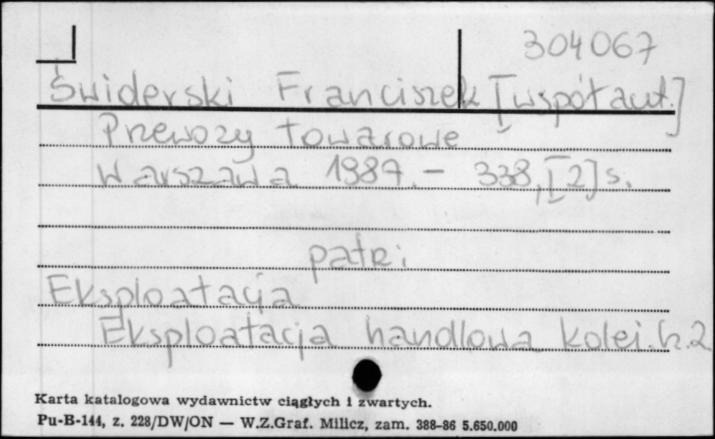 304067
Świderski Franciszek [współaut.]
Przewozy towarowe
Warszawa 1987. - 338, [2] s.
patrz:
Eksploatacja
Eksploatacja handlowa kolei. Cz. 2
Karta katalogowa wydawnictw ciągłych i zwartych.
Pu-B-144, z. 228/DW/ON — W.Z.Graf. Milicz, zam. 388-86 5.650.000